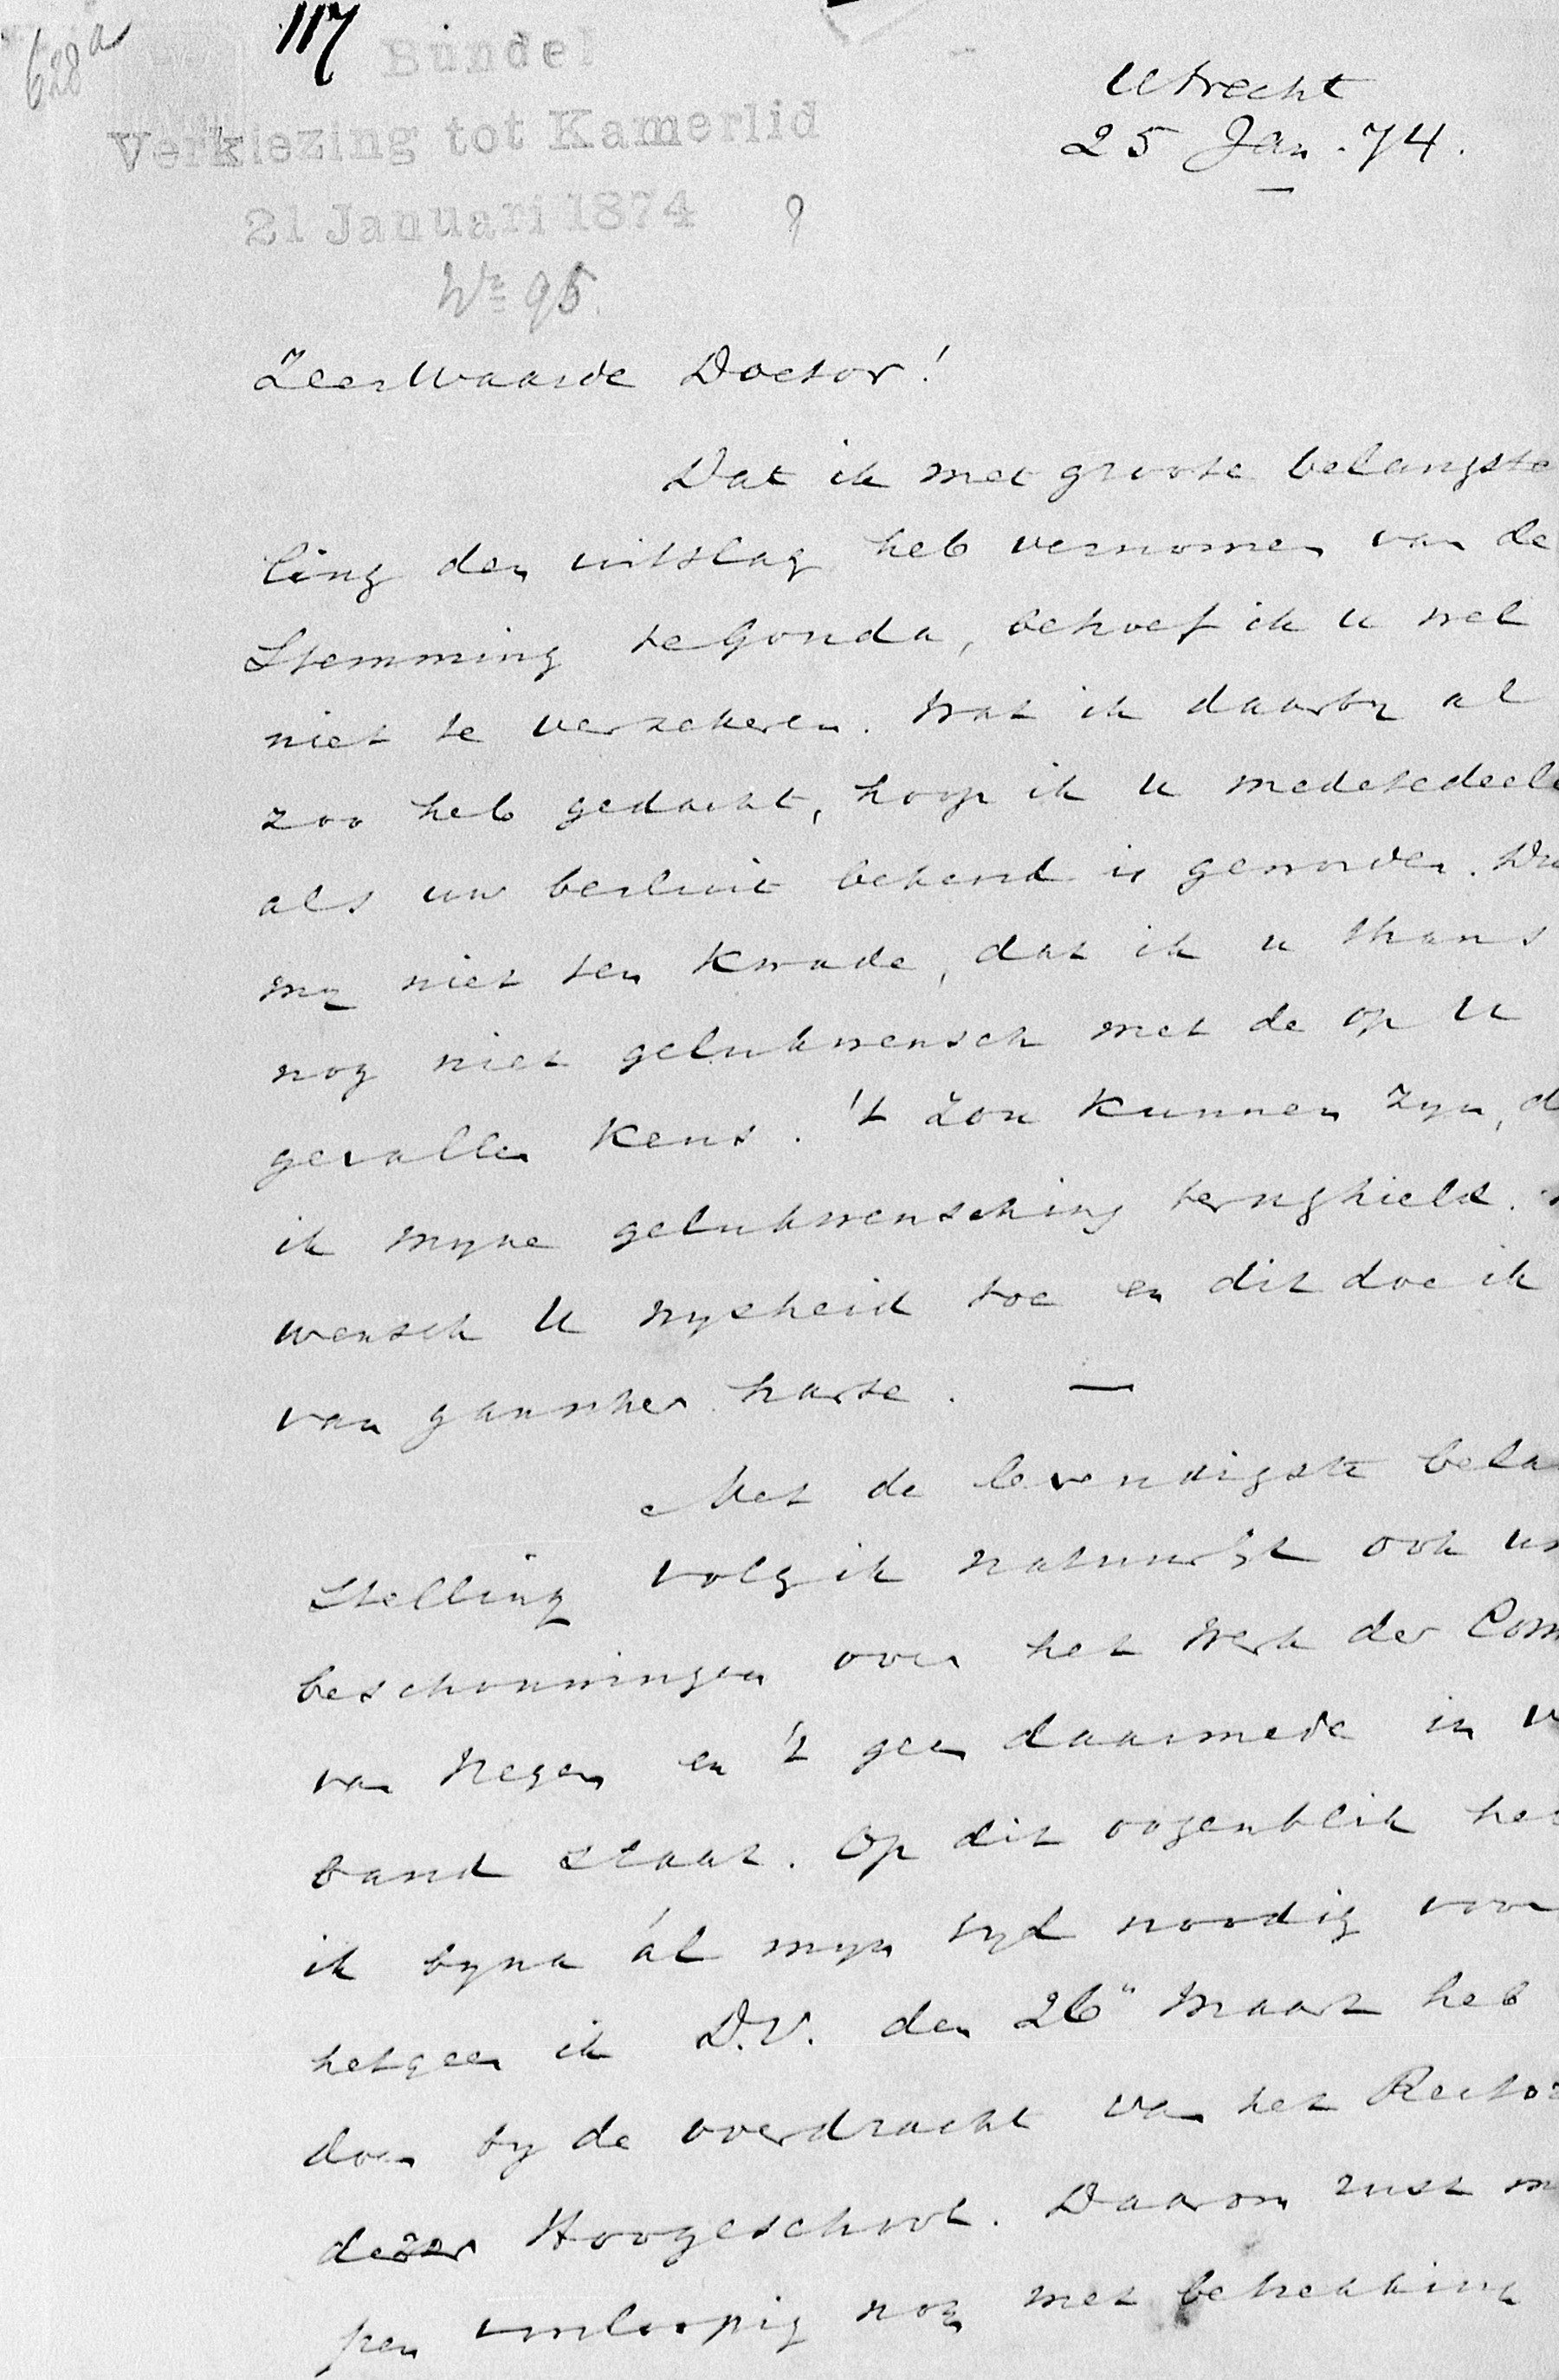 628a
117
Bundel
Verkiezing tot Kamerlid
21 Januari 1874 ?
No 95.
Utrecht
25 Jan. 74.
ZeerWaarde Doctor!
Dat ik met groote belangste
ling den uitslag heb vernomen van de
Stemming te Gouda, behoef ik u wel
niet te verzekeren. Wat ik daarby al
zoo heb gedacht, hoop ik u medetedeele
als uw besluit bekend is geworden. Du
my niet ten kwade, dat ik u thans
nog niet gelukwensch met de op U
gevallen keus. 't Zou kunnen zyn, d
ik myne gelukwensching terughield.
wensch U wysheid toe en dit doe ik
van ganscher harte. —
Met de levendigste bela
stelling volg ik natuurlyk ook uw
beschouwingen over het werk der Com
van Negen en 't geen daarmede in v
band staat. Op dit oogenblik heb
ik byna ál myn tyd noodig voor
hetgeen ik D.V. den 26n Maart heb
doen by de overdracht van het Rector
dezer Hoogeschool. Daarom rust m
pen voorloopig nog met betrekking